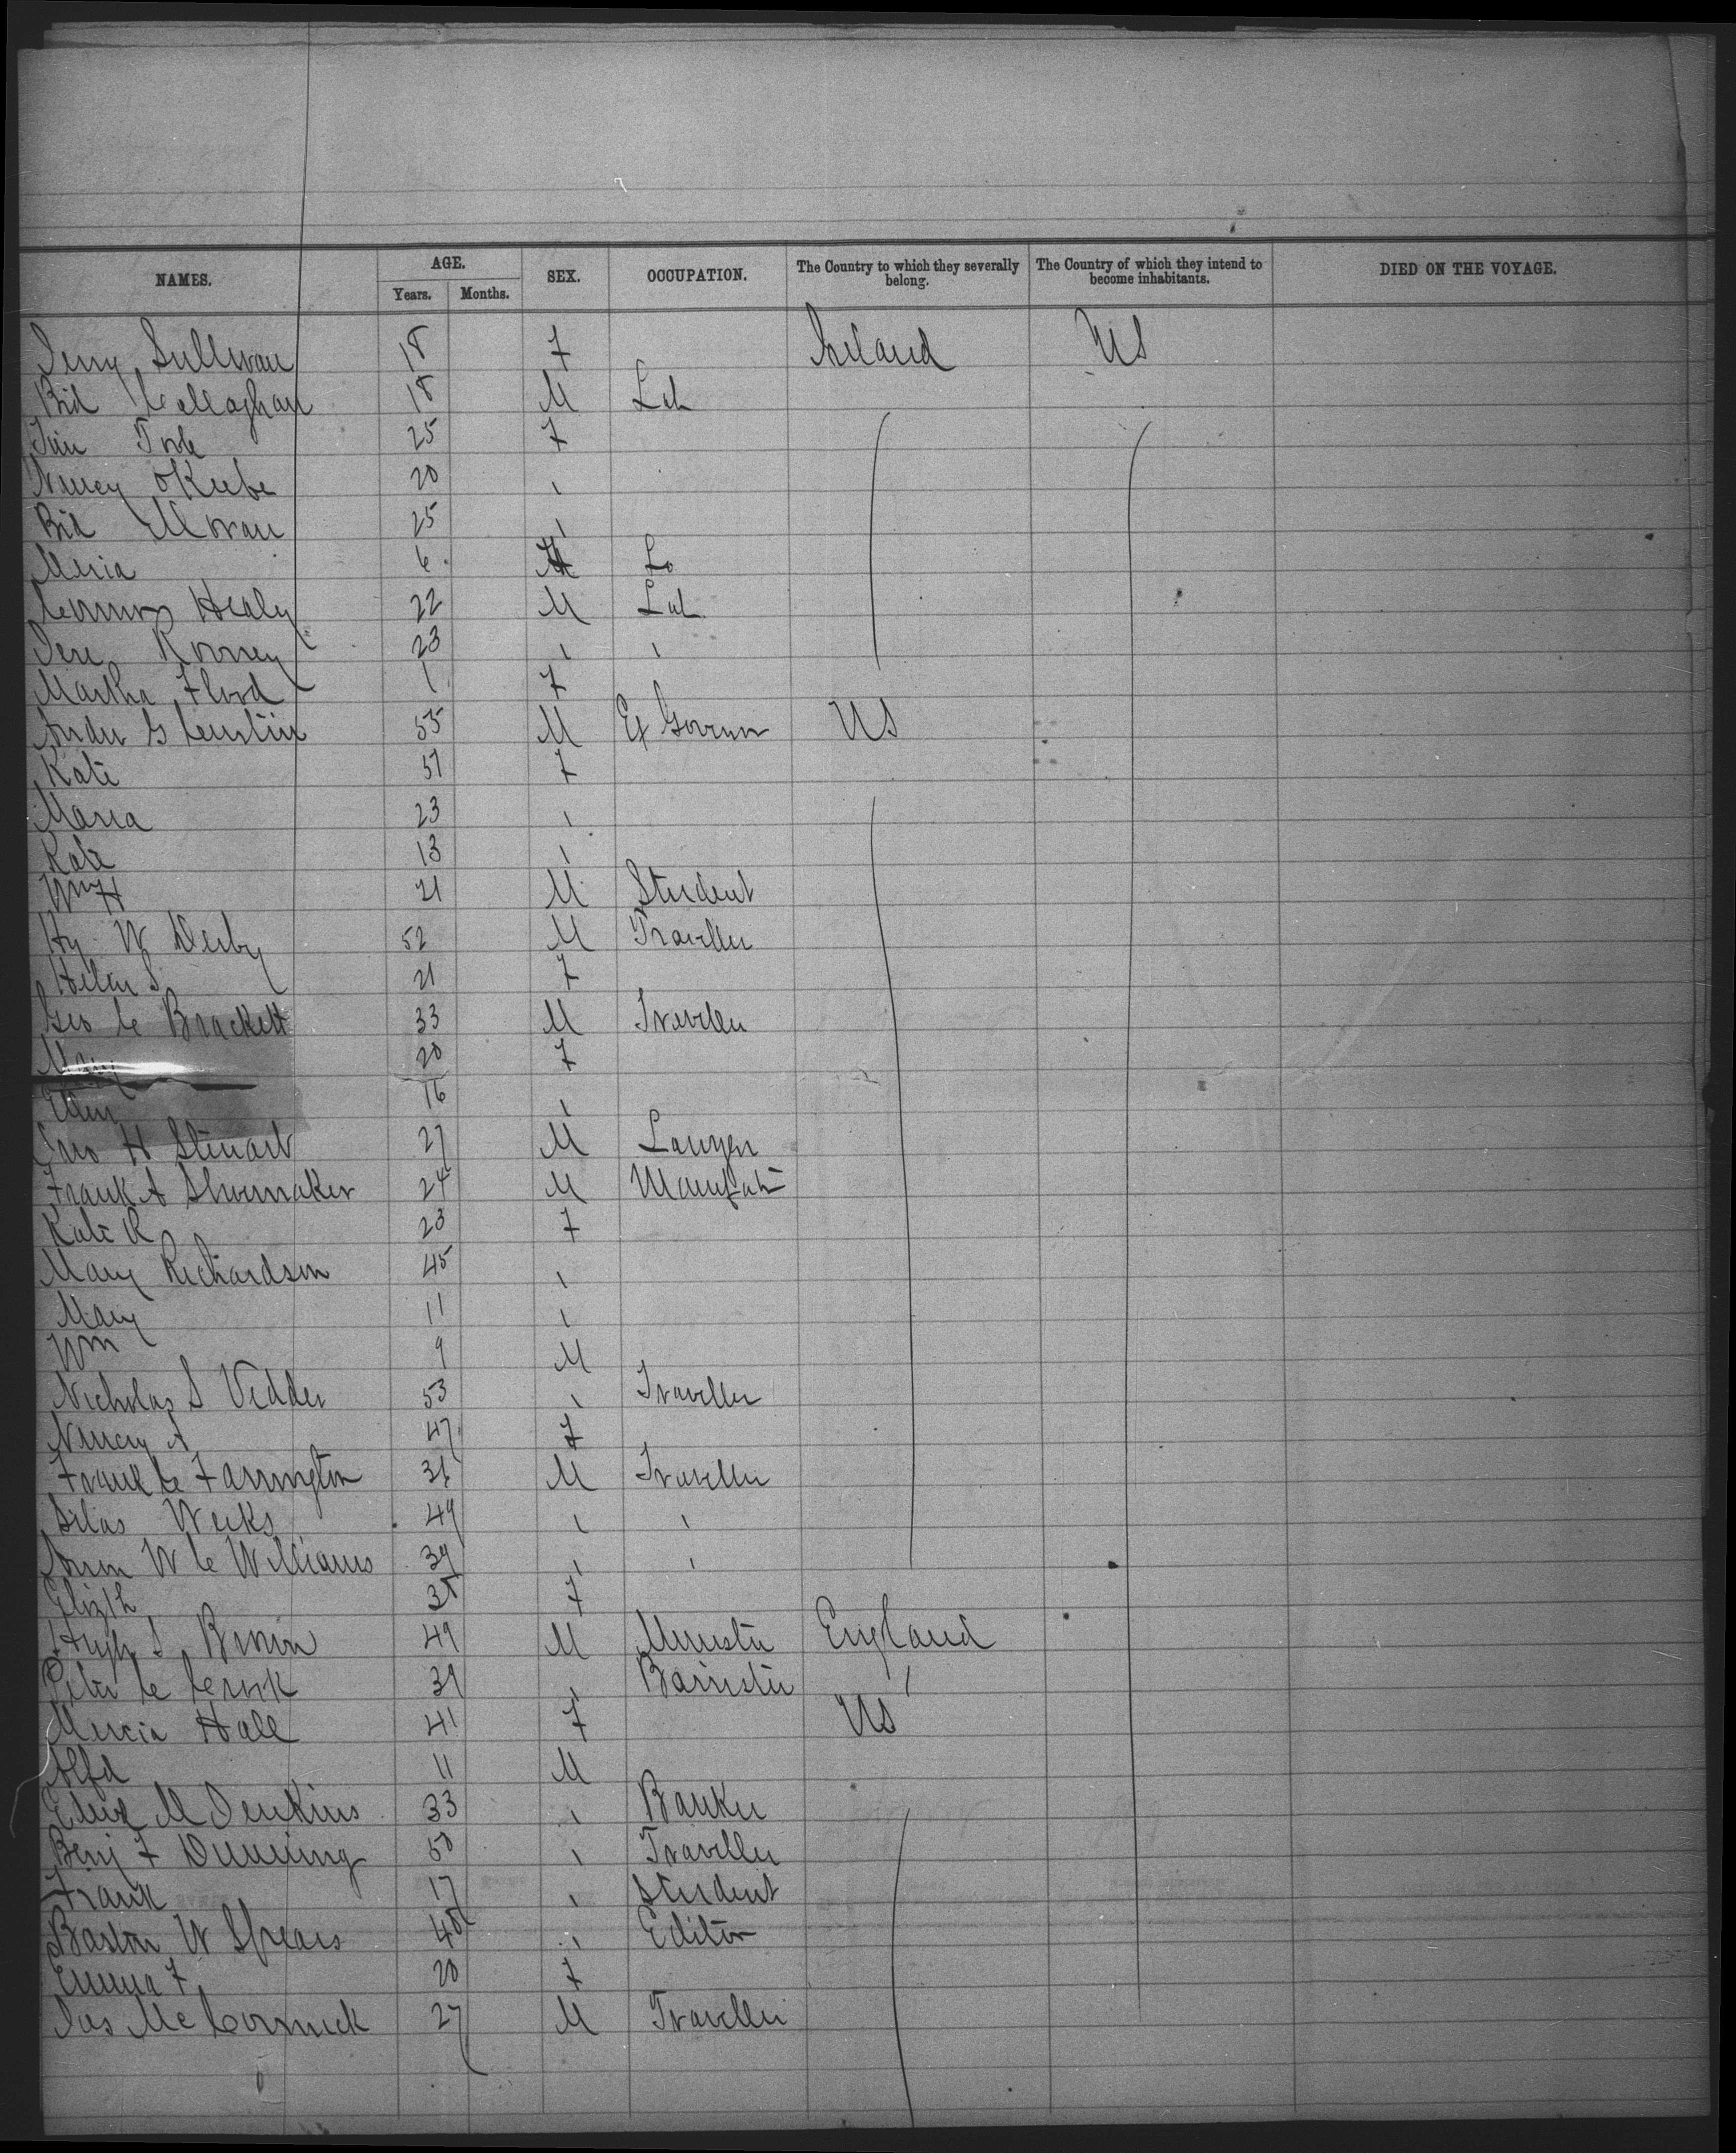 NAMES. AGE. Years. Months. SEX. OCCUPATION. The Country to which they severally belong. The Country of which they intend to become inhabitants. DIED ON THE VOYAGE.
Jerry Sullivan 18 F Ireland US
Brid Callaghan 18 M Lab
25 F
Nancy OKeefe 20 "
Brid Moran 25 "
6
Connor Healy 22 M Lab
Jere 23 " "
Martha Flood 1 F
Andw G Curtin 55 M Ex Governor US
Kate 51 F
Maria 23 "
Kate 13 "
Wm H 21 M Student
Hy W Derby 52 M Traveller
Helen S 21 F
Geo C Brackett 33 M Traveller
Mary 20 F
16 "
Jno H Stewart 27 M Lawyer
Frank A Shoemaker 24 M Manufctr
Kate R 23 F
Mary Richardson 45 "
Mary 11 "
Wm 9 M
Nicholas S Vedder 53 " Traveller
Nancy A 47 F
Frank C Farrington 36 M Traveller
Silas Weeks 49 " "
W C Williams 39 " "
Elizth 35 F
Hugh S Brown 49 M Minister England
Peter C 39 " Barrister "
Mercia Hall 41 F US
Alfd 11 M
Edwd M Jenkins 33 " Banker
Benj F Dunning 50 " Traveller
Frank 17 " Student
Barton W Spears 40 " Editor
Emma F 20 F
Jas McCormick 27 M Traveller